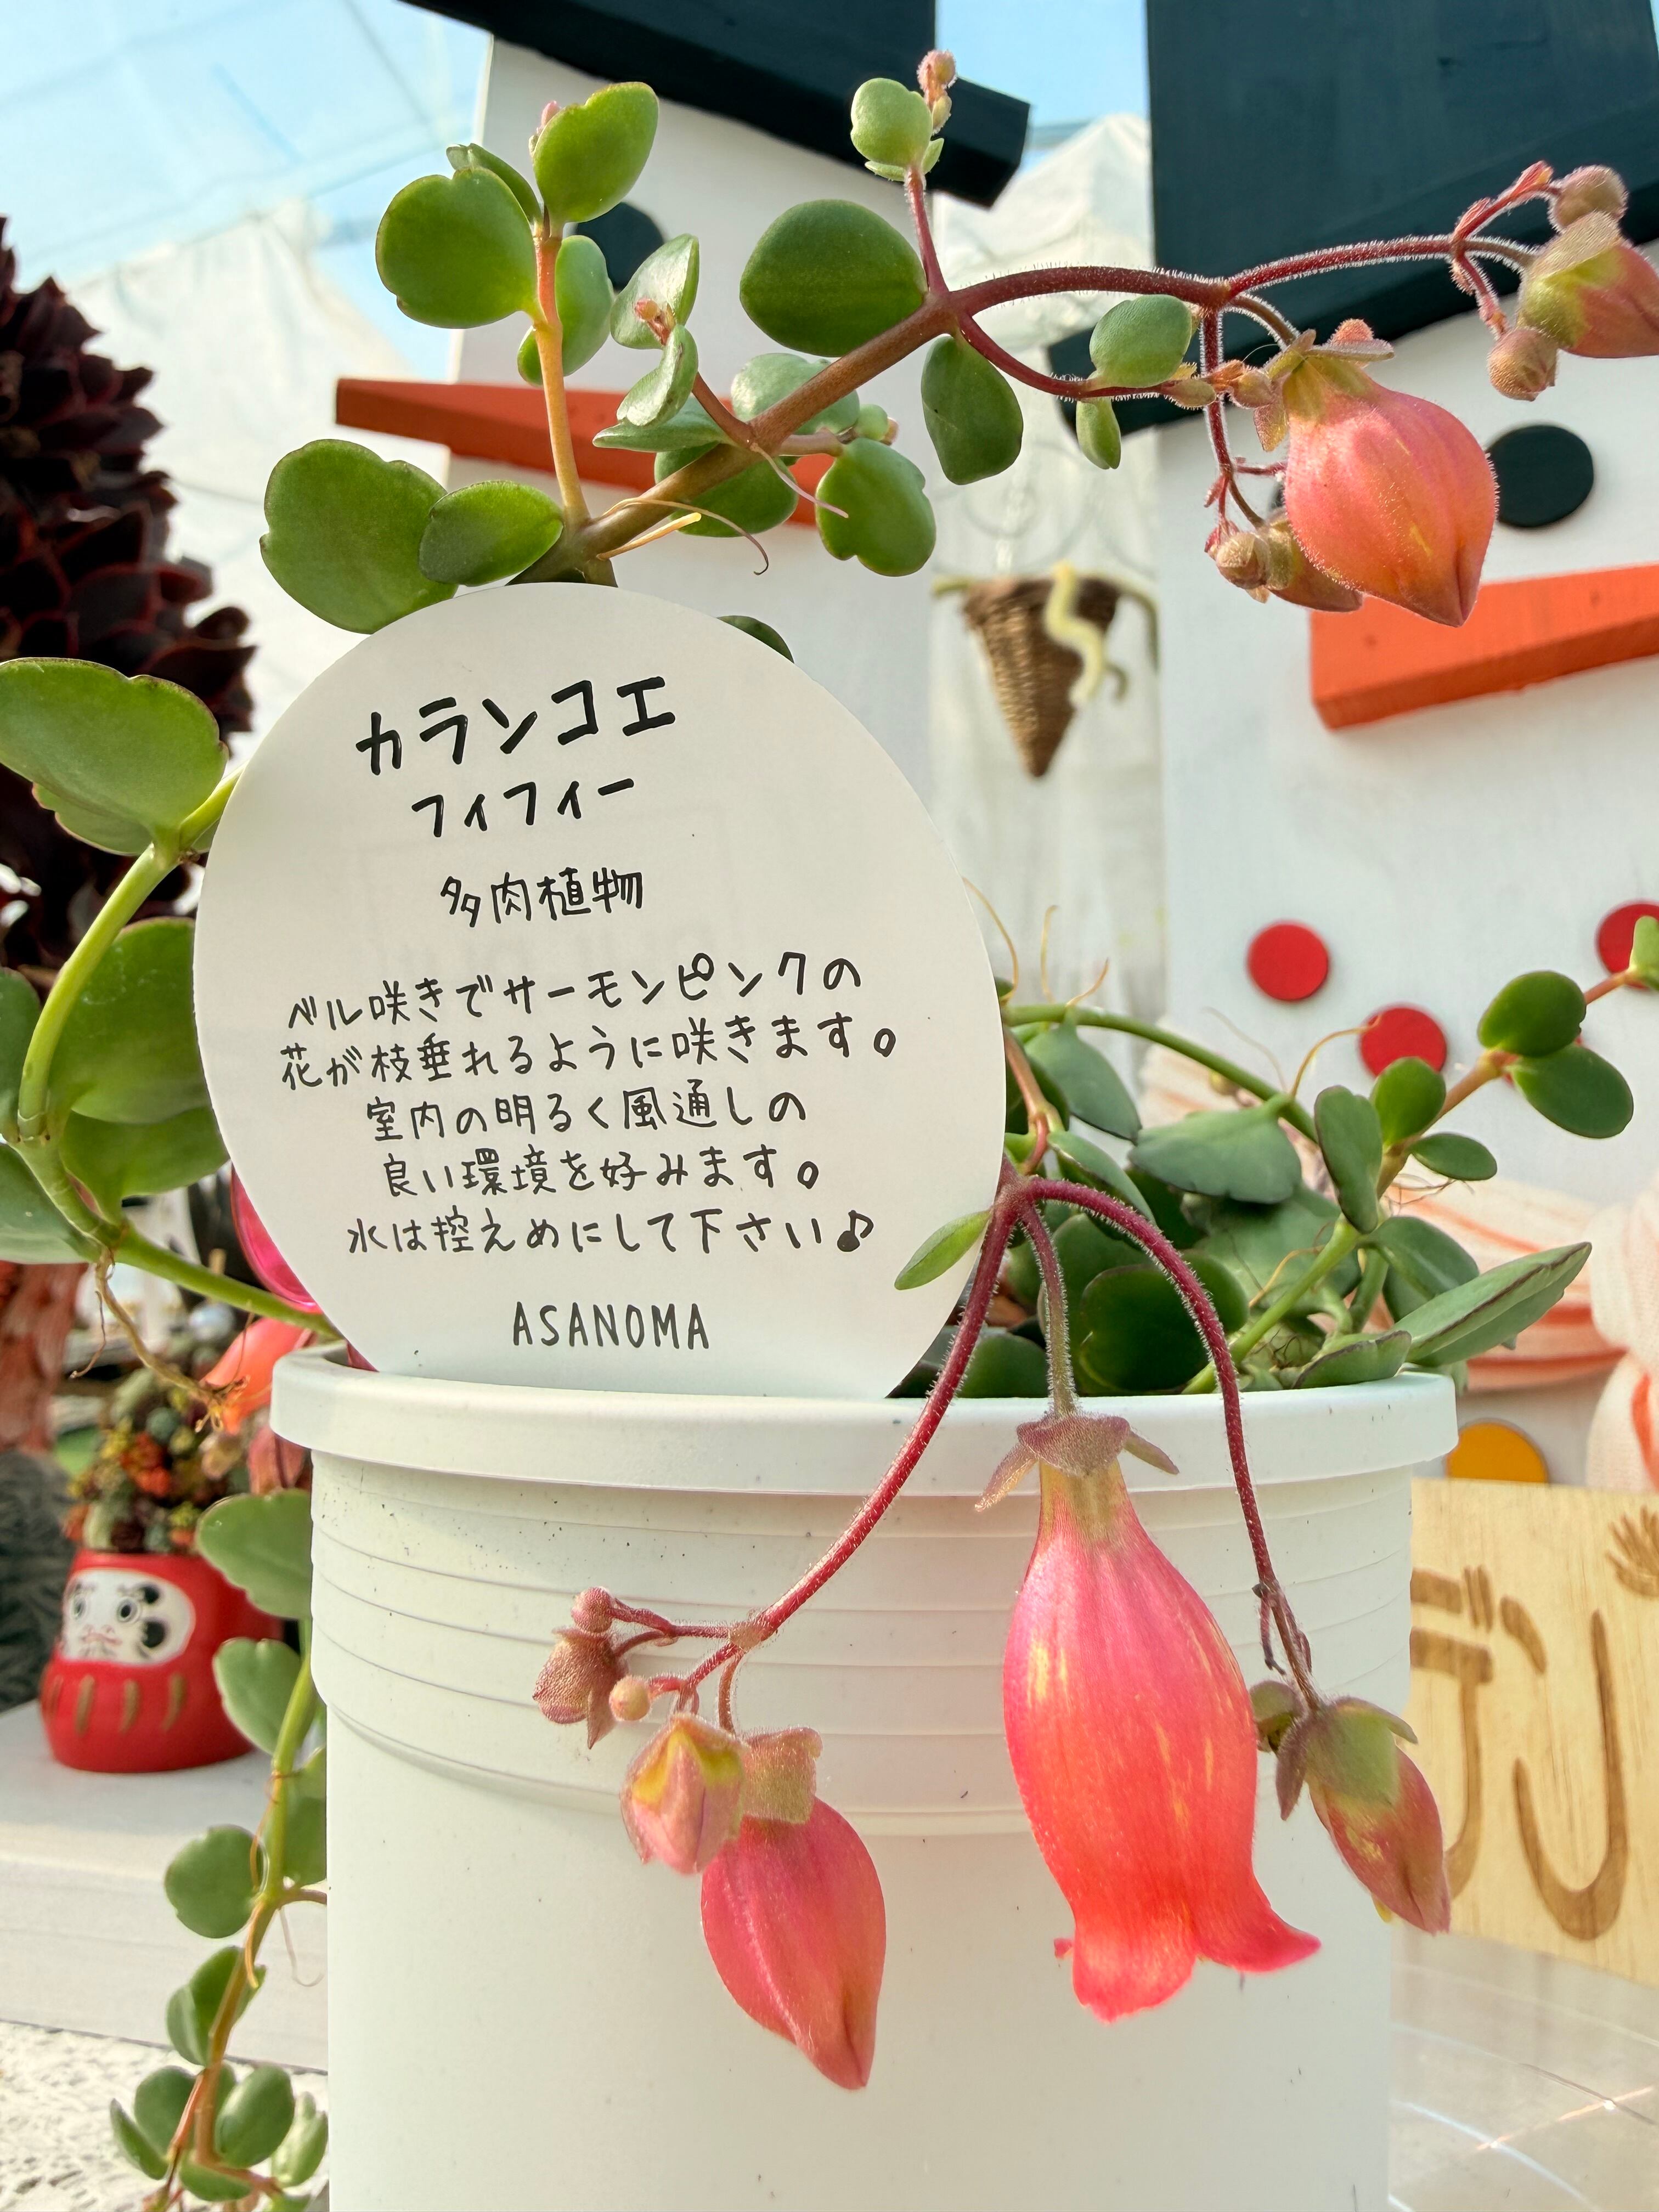 カランコエ
フィフィー
多肉植物
ベル咲きでサーモンピンクの
花が枝垂れるように咲きます。
室内の明るく風通しの
良い環境を好みます。
水は控えめにして下さい♪
ASANOMA